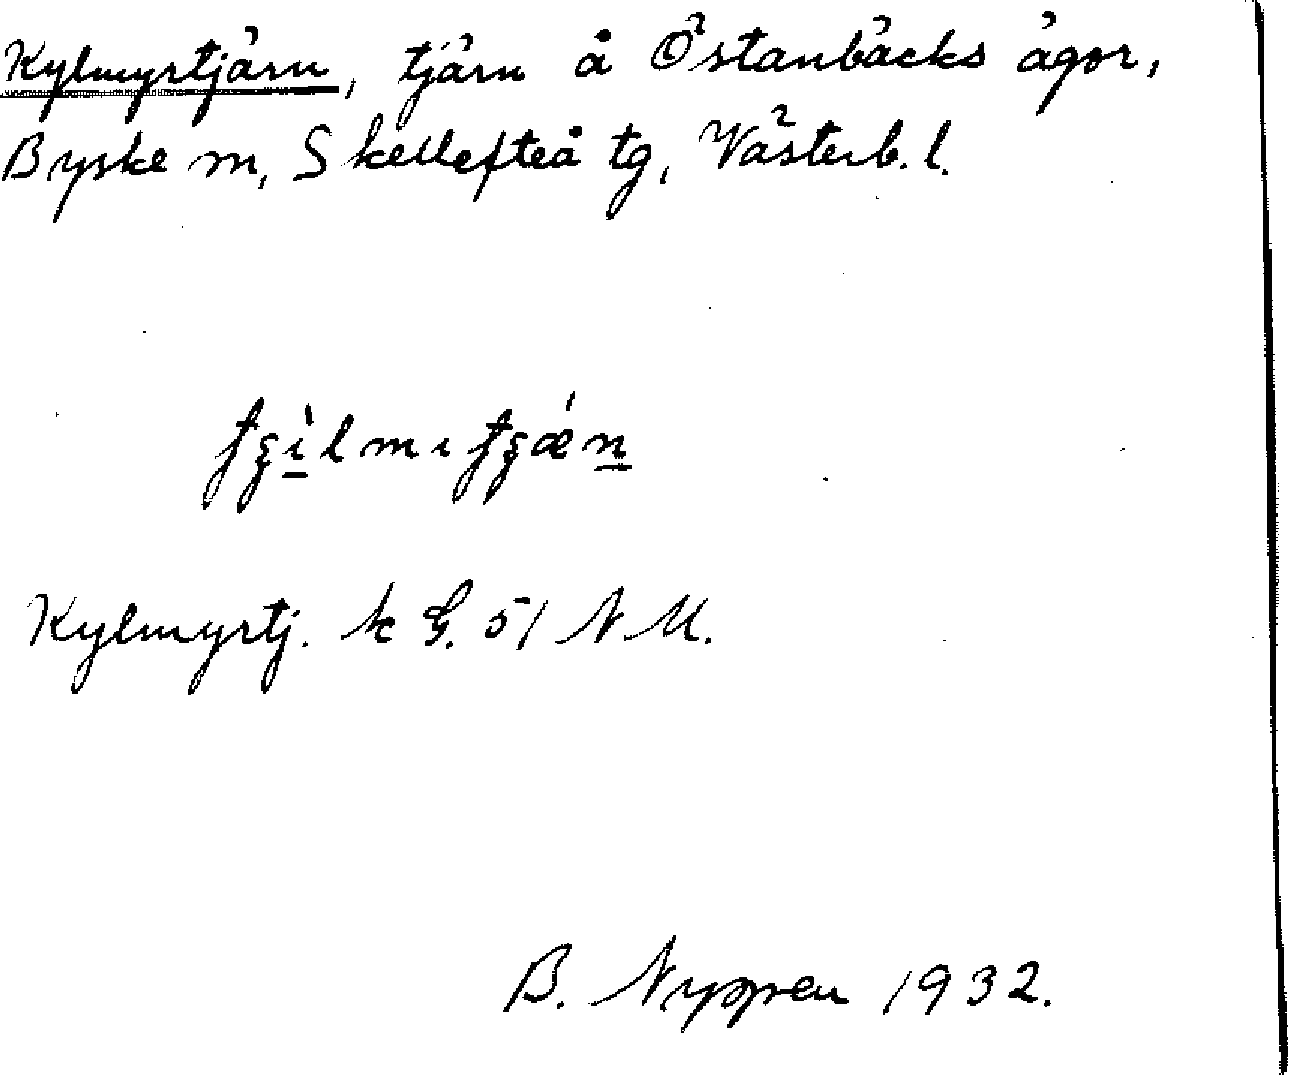 Kylmyrtjärn, tjärn å Östanbäcks ägor,
Byske sn, Skellefteå tg, Västerb. l.
Kylmyrtj. k G. 51 NU.
B. Nyppen 1932.